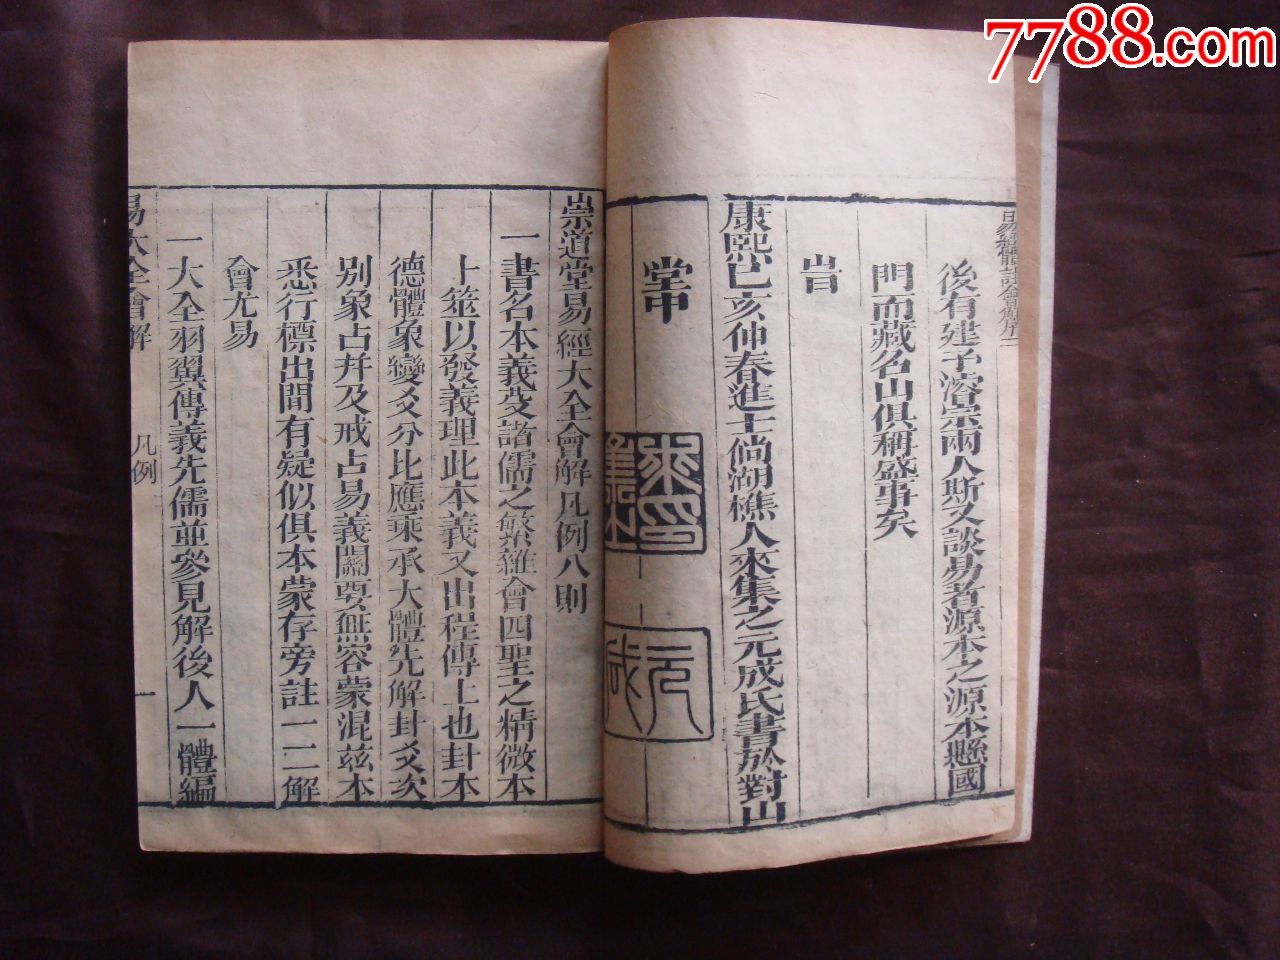 7788.com
後有建予濬宗兩人斯文談易者源本之源本懸國
門而藏名山俱稱盛事矣
旹
康熙己亥仲春進士倘湖樵人來集之元成氏書於對山
堂中
來集之印
元成
崇道堂易經大全會解凡例八則
一書名本義芟諸儒之繁雜會四聖之精微本
上筮以發義理此本義又出程傳上也卦本
德體象變爻分比應乘承大體先解卦爻次
別象占幷及戒占易義關要無容蒙混兹本
悉行標出間有疑似俱本蒙存旁註一二解
會尤易
一大全羽翼傳義先儒並參見解後人一體編
易大全會解 凡例 一